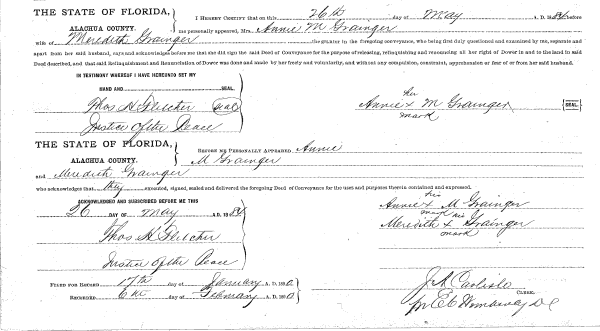 THE STATE OF FLORIDA, I HEREBY CERTIFY that on this 26th day of May A. D. 188 before
ALACHUA COUNTY. me personally appeared, Mrs. Annie M Grainger
wife of Meredith Grainger the grantor in the foregoing conveyance, who being first duly questioned and examined by me, separate and
apart from her said husband, says and acknowledges before me that she did sign the said Deed of Conveyance for the purpose of releasing, relinquishing and renouncing all her right of Dower in and to the land in said
Deed described, and that said Relinquishment and Renunciation of Dower was done and made by her freely and voluntarily, and without any compulsion, constraint, apprehension or fear of or from her said husband.
IN TESTIMONY WHEREOF I HAVE HEREUNDO SET MY
HAND AND SEAL.
her
Thos H Fletcher Seal Annie x M Grainger SEAL
mark
Justice of the Peace
THE STATE OF FLORIDA, BEFORE ME PERSONALLY APPEARED Annie
ALACHUA COUNTY. M Grainger
and Meredith Grainger
who acknowledges that they executed, signed, sealed and delivered the foregoing Deed of Conveyance for the uses and purposes therein contained and expressed.
ACKNOWLEDGED AND SUBSCRIBED BEFORE ME THIS
her
26 DAY OF May A.D. 188 Annie x M Grainger
mark his
Thos H Fletcher Meredith x Grainger
mark
Justice of the Peace
FILED FOR RECORD 17th day of January A. D. 1890 J. A. Carlisle
CLERK.
RECORDED 6th day of February A. D. 1890 pr E C